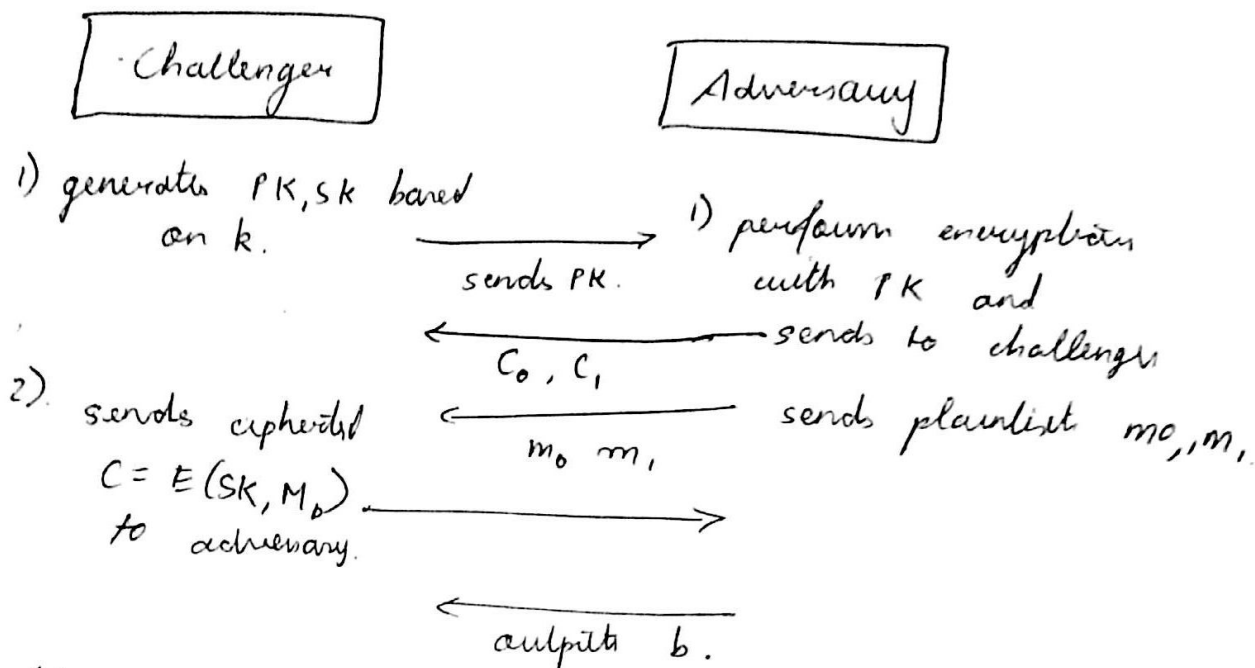 Challenger
Adversary
1) generates PK, SK based
on k.
sends PK.
1) perform encryption
with PK and
sends to challenger
C₀, C₁
2) sends ciphertext
C = E(SK, M_b)
to adversary.
sends plaintext m0, m₁
m₀ m₁
outputs b.